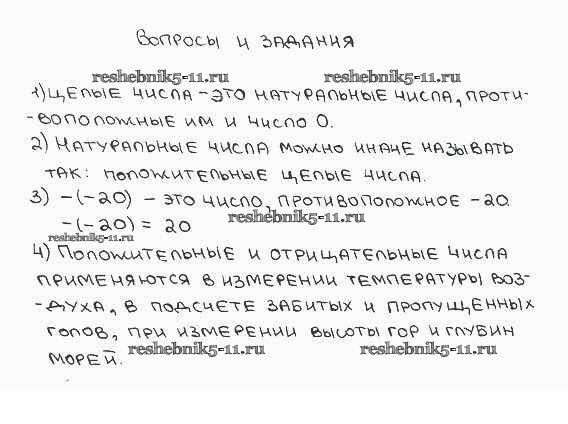 ВОПРОСЫ И ЗАДАНИЯ
reshebnik5-11.ru reshebnik5-11.ru
1) ЦЕЛЫЕ ЧИСЛА – ЭТО НАТУРАЛЬНЫЕ ЧИСЛА, ПРОТИ-
-ВОПОЛОЖНЫЕ ИМ И ЧИСЛО 0.
2) НАТУРАЛЬНЫЕ ЧИСЛА МОЖНО ИНАЧЕ НАЗЫВАТЬ
ТАК: ПОЛОЖИТЕЛЬНЫЕ ЦЕЛЫЕ ЧИСЛА.
3) –(–20) – ЭТО ЧИСЛО, ПРОТИВОПОЛОЖНОЕ –20.
reshebnik5-11.ru
–(–20) = 20
reshebnik5-11.ru
4) ПОЛОЖИТЕЛЬНЫЕ И ОТРИЦАТЕЛЬНЫЕ ЧИСЛА
ПРИМЕНЯЮТСЯ В ИЗМЕРЕНИИ ТЕМПЕРАТУРЫ ВОЗ-
-ДУХА, В ПОДСЧЕТЕ ЗАБИТЫХ И ПРОПУЩЕННЫХ
ГОЛОВ, ПРИ ИЗМЕРЕНИИ ВЫСОТЫ ГОР И ГЛУБИН
МОРЕЙ.
reshebnik5-11.ru reshebnik5-11.ru